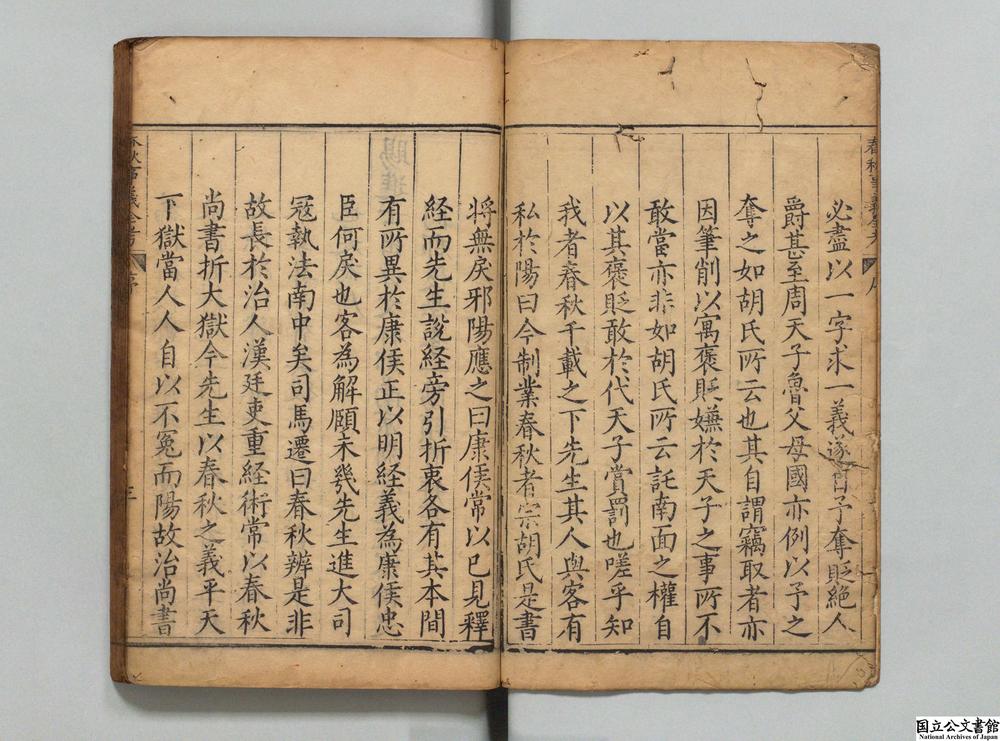 必盡以一字求一義遂言予奪貶絕人
爵甚至周天子魯父母國亦例以予之
奪之如胡氏所云也其自謂竊取者亦
因筆削以寓褒貶嫌於天子之事所不
敢當亦非如胡氏所云託南面之權自
以其褒貶敢於代天子賞罰也嗟乎知
我者春秋千載之下先生其人與客有
私於陽曰今制業春秋者宗胡氏是書
將無戾邪陽應之曰康侯常以已見釋
経而先生說経旁引折衷各有其本間
有所異於康侯正以明経義為康侯忠
臣何戾也客為解頤未幾先生進大司
冦執法南中矣司馬遷曰春秋辨是非
故長於治人漢廷吏重経術常以春秋
尚書折大獄今先生以春秋之義平天
下獄當人人自以不冤而陽故治尚書
春秋事義全考 序
三
国立公文書館
National Archives of Japan